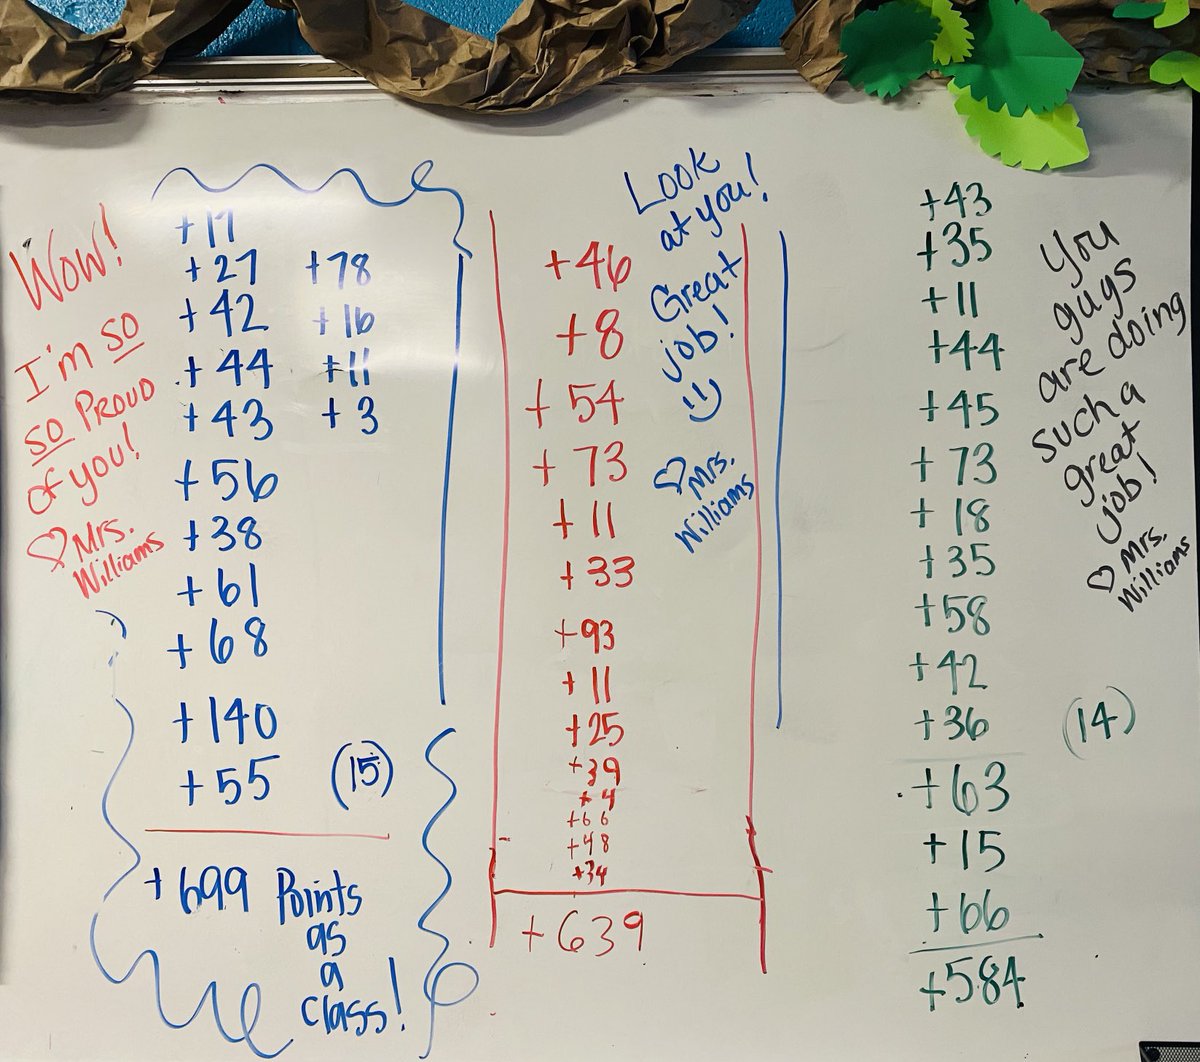 Wow!
I'm so
so PROUD
of you!
♡ Mrs.
Williams
+17
+27 +78
+42 +16
+44 +11
+43 +3
+56
+38
+61
+68
+140
+55 (15)
+699 Points
as
a
class!
+46
+8
+54
+73
+11
+33
+93
+11
+25
+39
+4
+66
+48
+34
+639
Look
at you!
Great
job!
♡ Mrs.
Williams
+43
+35
+11
+44
+45
+73
+18
+35
+58
+42
+36 (14)
+63
+15
+66
+584
You
guys
are doing
such a
great
job!
♡ Mrs.
Williams